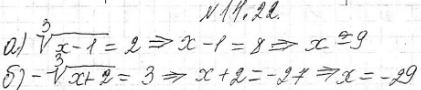 N 11.22.
а) ∛(x-1) = 2 ⇒ x-1 = 8 ⇒ x = 9
б) -∛(x+2) = 3 ⇒ x+2 = -27 ⇒ x = -29